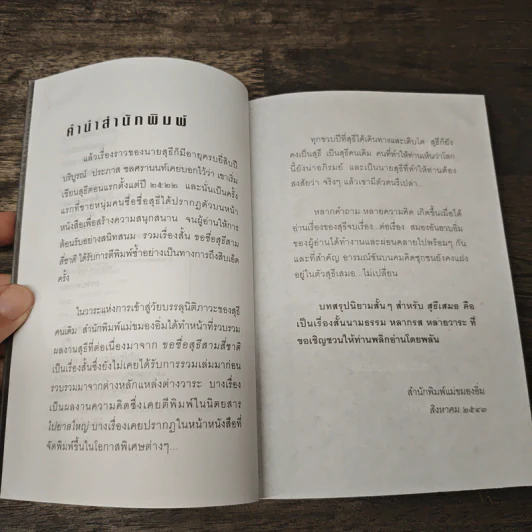 คำนำสำนักพิมพ์
แล้วเรื่องราวของนายสุธีก็มีอายุครบยี่สิบปี
บริบูรณ์ ประภาส ชลศรานนท์เคยบอกไว้ว่า เขาเริ่ม
เขียนสุธีตอนแรกตั้งแต่ปี ๒๕๒๒ และนั่นเป็นครั้ง
แรกที่ชายหนุ่มคนชื่อซื่อสุธีได้ปรากฏตัวบนหน้า
หนังสือเพื่อสร้างความสนุกสนาน จนผู้อ่านให้การ
ต้อนรับอย่างสนิทสนม รวมเรื่องสั้น ขอชื่อสุธีสาม
สี่ชาติ ได้รับการตีพิมพ์ซ้ำอย่างเป็นทางการถึงสิบเอ็ด
ครั้ง
ในวาระแห่งการเข้าสู่วัยบรรลุนิติภาวะของสุธี
คนเดิม สำนักพิมพ์แม่ขมองอิ่มได้ทำหน้าที่รวบรวม
ผลงานสุธีที่ต่อเนื่องมาจาก ขอชื่อสุธีสามสี่ชาติ
เป็นเรื่องสั้นซึ่งยังไม่เคยได้รับการรวมเล่มมาก่อน
รวบรวมมาจากต่างหลักแหล่งต่างวาระ บางเรื่อง
เป็นผลงานความคิดซึ่งเคยตีพิมพ์ในนิตยสาร
ไปยาลใหญ่ บางเรื่องเคยปรากฏในหน้าหนังสือที่
จัดพิมพ์ขึ้นในโอกาสพิเศษต่างๆ...
ทุกขวบปีที่สุธีได้เดินทางและเติบโต สุธีก็ยัง
คงเป็นสุธี เป็นสุธีคนเดิม คนที่ทำให้ท่านเห็นว่าโลก
นี้ยังน่าอภิรมย์ และเป็นนายสุธีที่ทำให้ท่านต้อง
สงสัยว่า จริงๆ แล้วเขามีตัวตนรึเปล่า...
หลากคำถาม หลายความคิด เกิดขึ้นเมื่อได้
อ่านเรื่องของสุธีจบเรื่อง...ต่อเรื่อง สมองอันอวบอิ่ม
ของผู้อ่านได้ทำงานและผ่อนคลายไปพร้อมๆ กัน
และที่สำคัญ อารมณ์ขันบนคมคิดซุกซนยังคงแฝง
อยู่ในตัวสุธีเสมอ...ไม่เปลี่ยน
บทสรุปนิยามสั้นๆ สำหรับ สุธีเสมอ คือ
เป็นเรื่องสั้นนามธรรม หลากรส หลายวาระ ที่
ขอเชิญชวนให้ท่านพลิกอ่านโดยพลัน
สำนักพิมพ์แม่ขมองอิ่ม
สิงหาคม ๒๕๔๓